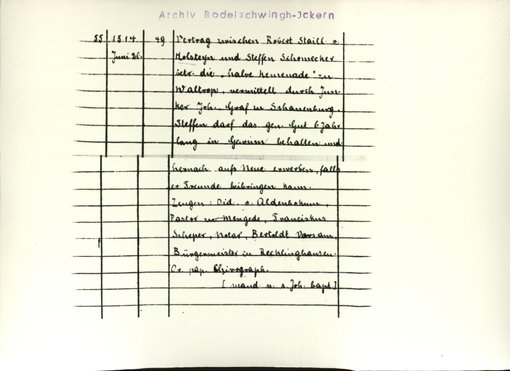 Archiv Bodelschwingh-Ickern
55 1514 49 Vertrag zwischen Robert Staill v.
Juni 26. Holsteyn und Steffen Schonecker
betr. die „halve kemenade" in
Waltrop, vermittelt durch Jun-
ker Joh. Graf zu Schauenburg.
Steffen darf das gen. Gut 6 Jahr
lang in Gewinn behalten und
hernach aufs Neue erwerben, falls
er Freunde beibringen kann.
Zeugen: Did. v. Aldenbokum,
Pastor zu Mengede, Franciskus
Scheper, Notar, Bertoldt Varsam,
Bürgermeister in Recklinghausen.
Or. pap. Chirograph.
[ mand. n. s. Joh. bapt ]